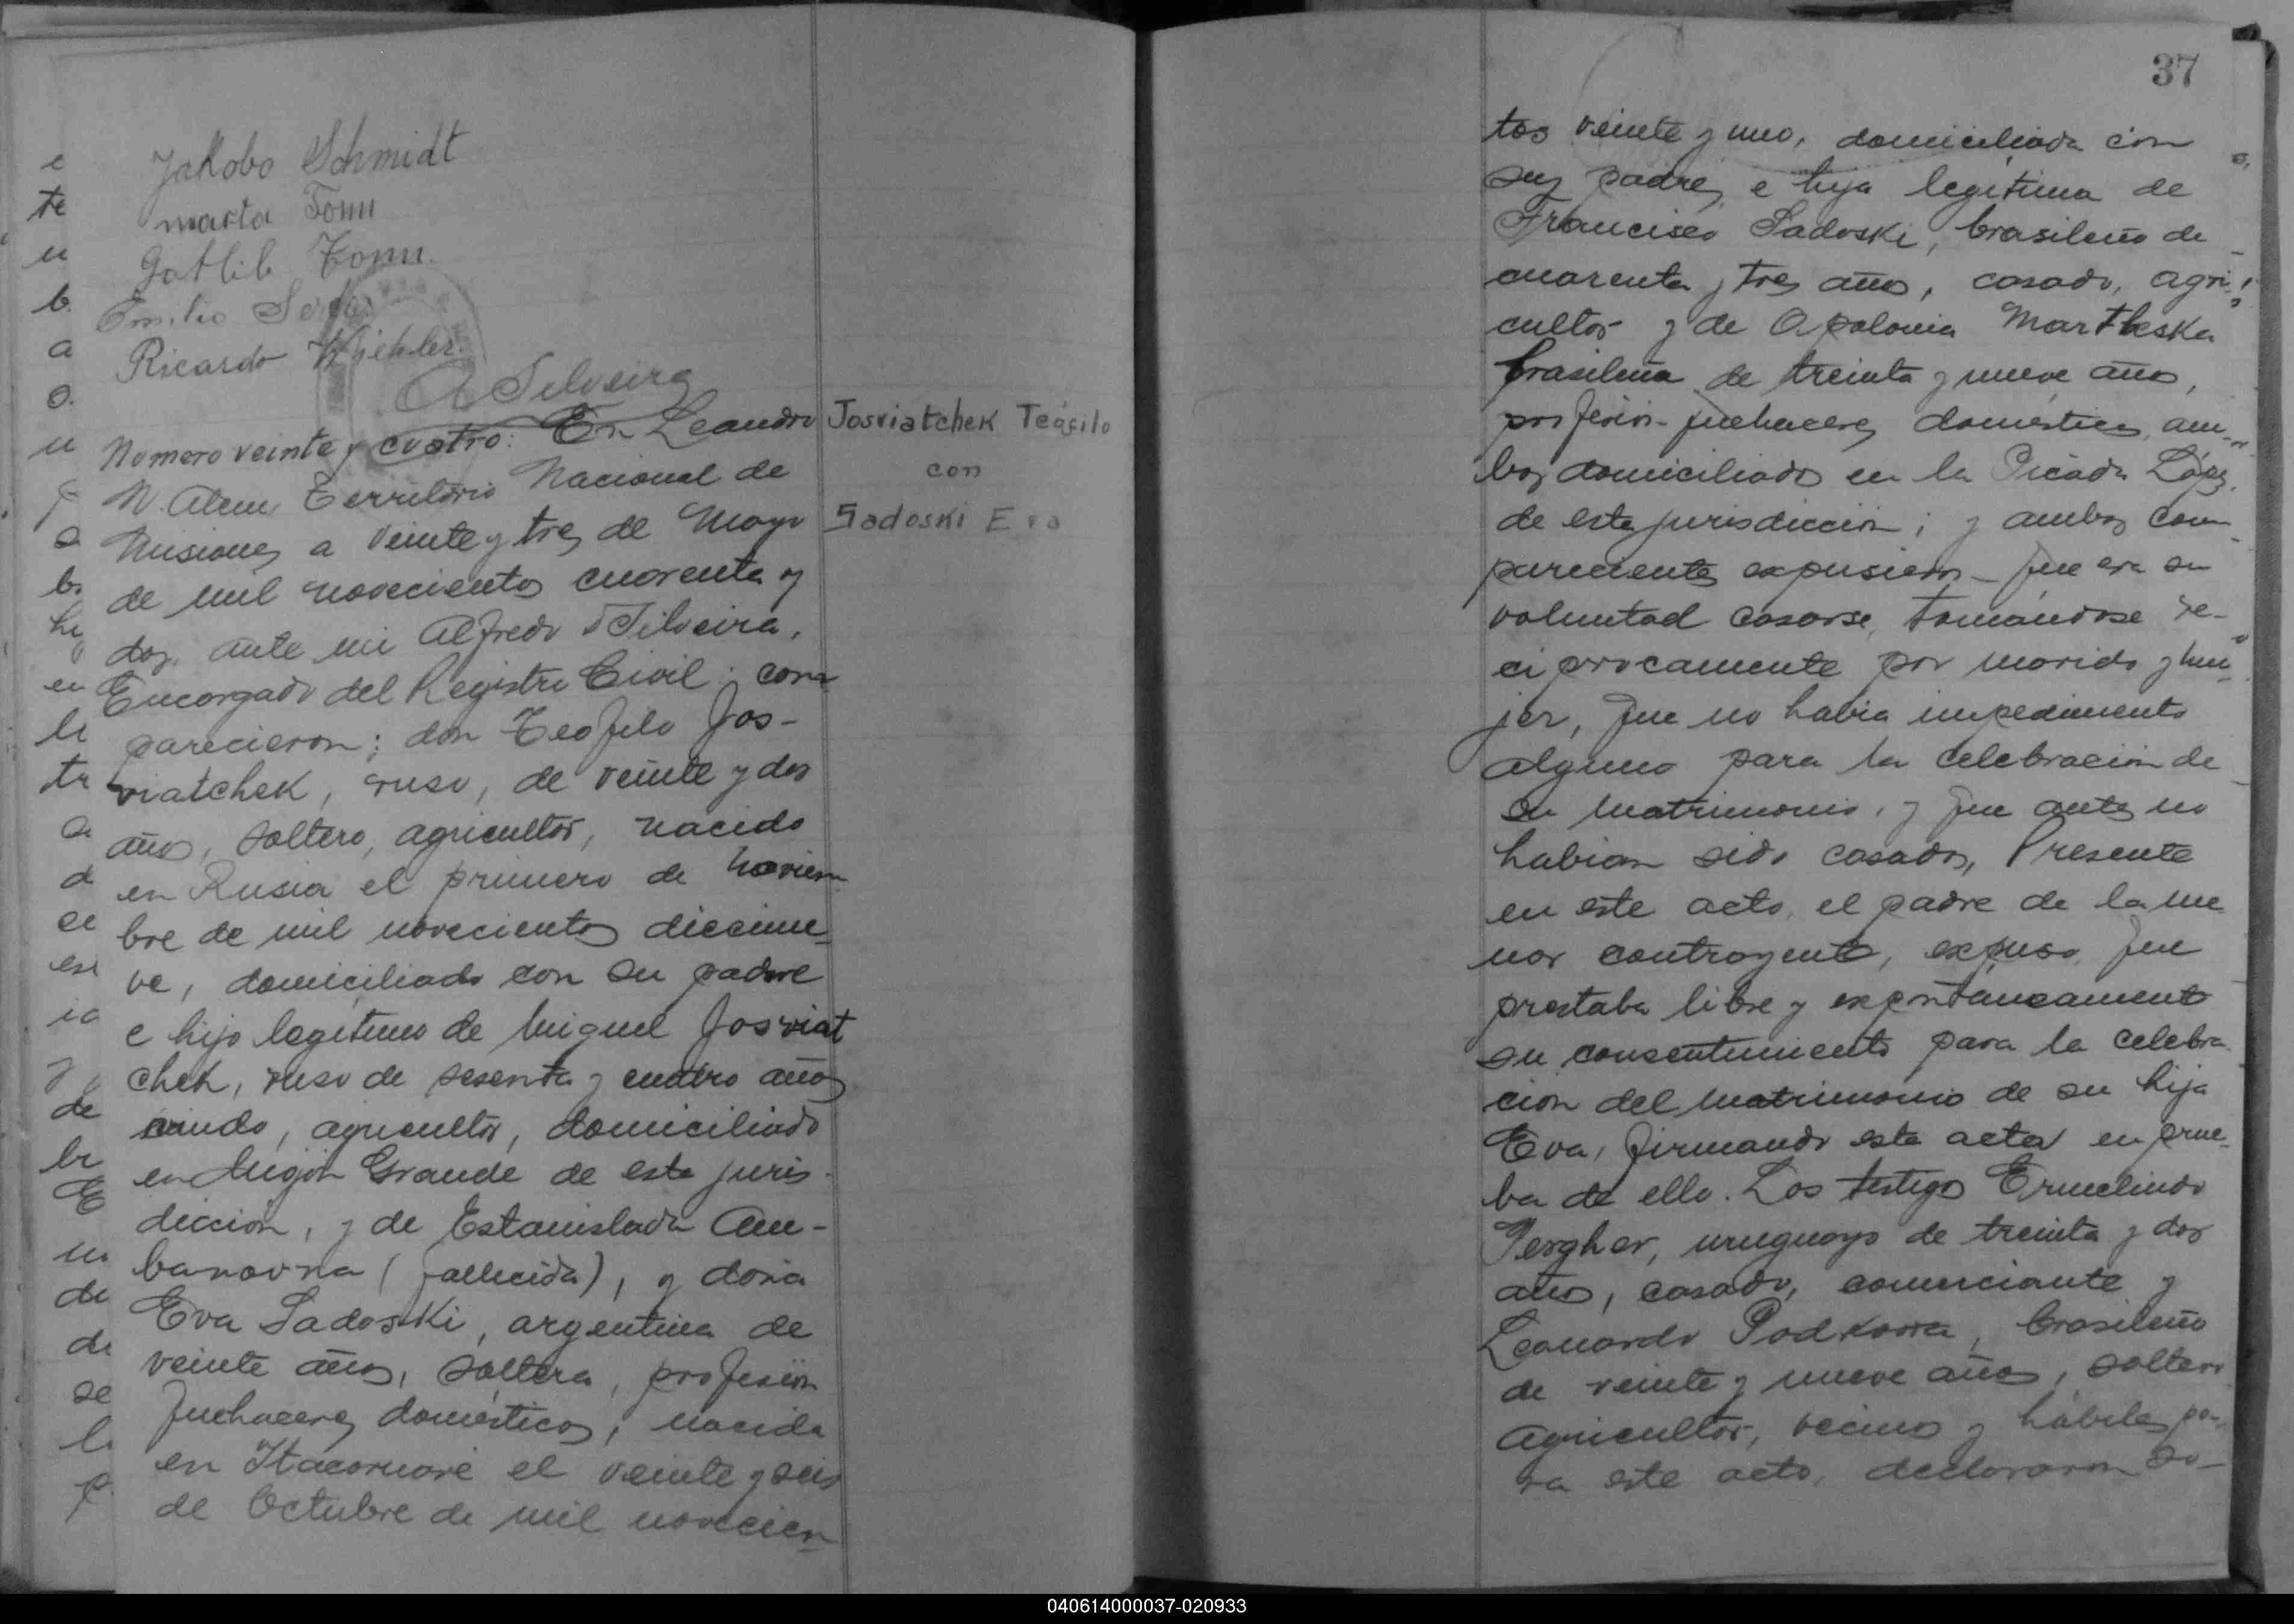 Jakobo Schmidt
marta Tonn
Gotlib Tonn.
Emilio
Ricardo Kiehler.
A Silveira
Numero veinte y cuatro: En Leandro
N. Alem, Territorio Nacional de
Misiones a veinte y tres de Mayo
de mil novecientos cuarenta y
dos, ante mi Alfredo Silveira,
Encargado del Registro Civil; com
parecieron; don Teofilo Jos-
viatchek, ruso, de veinte y dos
años, soltero, agricultor, nacido
en Rusia el primero de noviem
bre de mil novecientos diecinue
ve, domiciliado con su padre
e hijo legitimo de Miguel Josviat
chek, ruso de sesenta y cuatro años
viudo, agricultor, domiciliado
en Mojón Grande de esta juris-
dicción, y de Estanislada Am-
banovna (fallecida), y doña
Eva Sadoski, argentina de
veinte años, soltera, profesión
quehaceres domésticos, nacida
en Itacaruaré el veinte y seis
de Octubre de mil novecien
Josviatchek Teófilo
con
Sadoski Eva
e
te
u
b.
a
o.
u
a
b.
hi
en
le
tr
a
d
ce
en
ia
de
br
E
un
de
di
se
l
37
tos veinte y uno, domiciliada con
sus padres, e hija legitima de
Francisco Sadoski, brasileño de
cuarenta y tres años, casado, agri-
cultor y de Apolonia Martheska
brasileña de treinta y nueve años,
profesión quehaceres domésticos, am-
bos domiciliados en la Picada López,
de esta jurisdicción; y ambos com-
parecientes expusieron que era su
voluntad casarse, tomándose re-
ciprocamente por marido y mu-
jer, que no habia impedimento
alguno para la celebración de
su matrimonio, y que antes no
habian sido casados, Presente
en este acto, el padre de la me
nor contrayente, expuso que
prestaba libre y expontaneamente
su consentimiento para la celebra
ción del matrimonio de su hija
Eva, firmando esta acta en prue-
ba de ello. Los testigos Ermelindo
Pergher, uruguayo de treinta y dos
años, casado, comerciante y
Leonardo Podkowa, brasileño
de veinte y nueve años, soltero
agricultor, vecinos y hábiles pa-
ra este acto, declararon so-
040614000037-020933